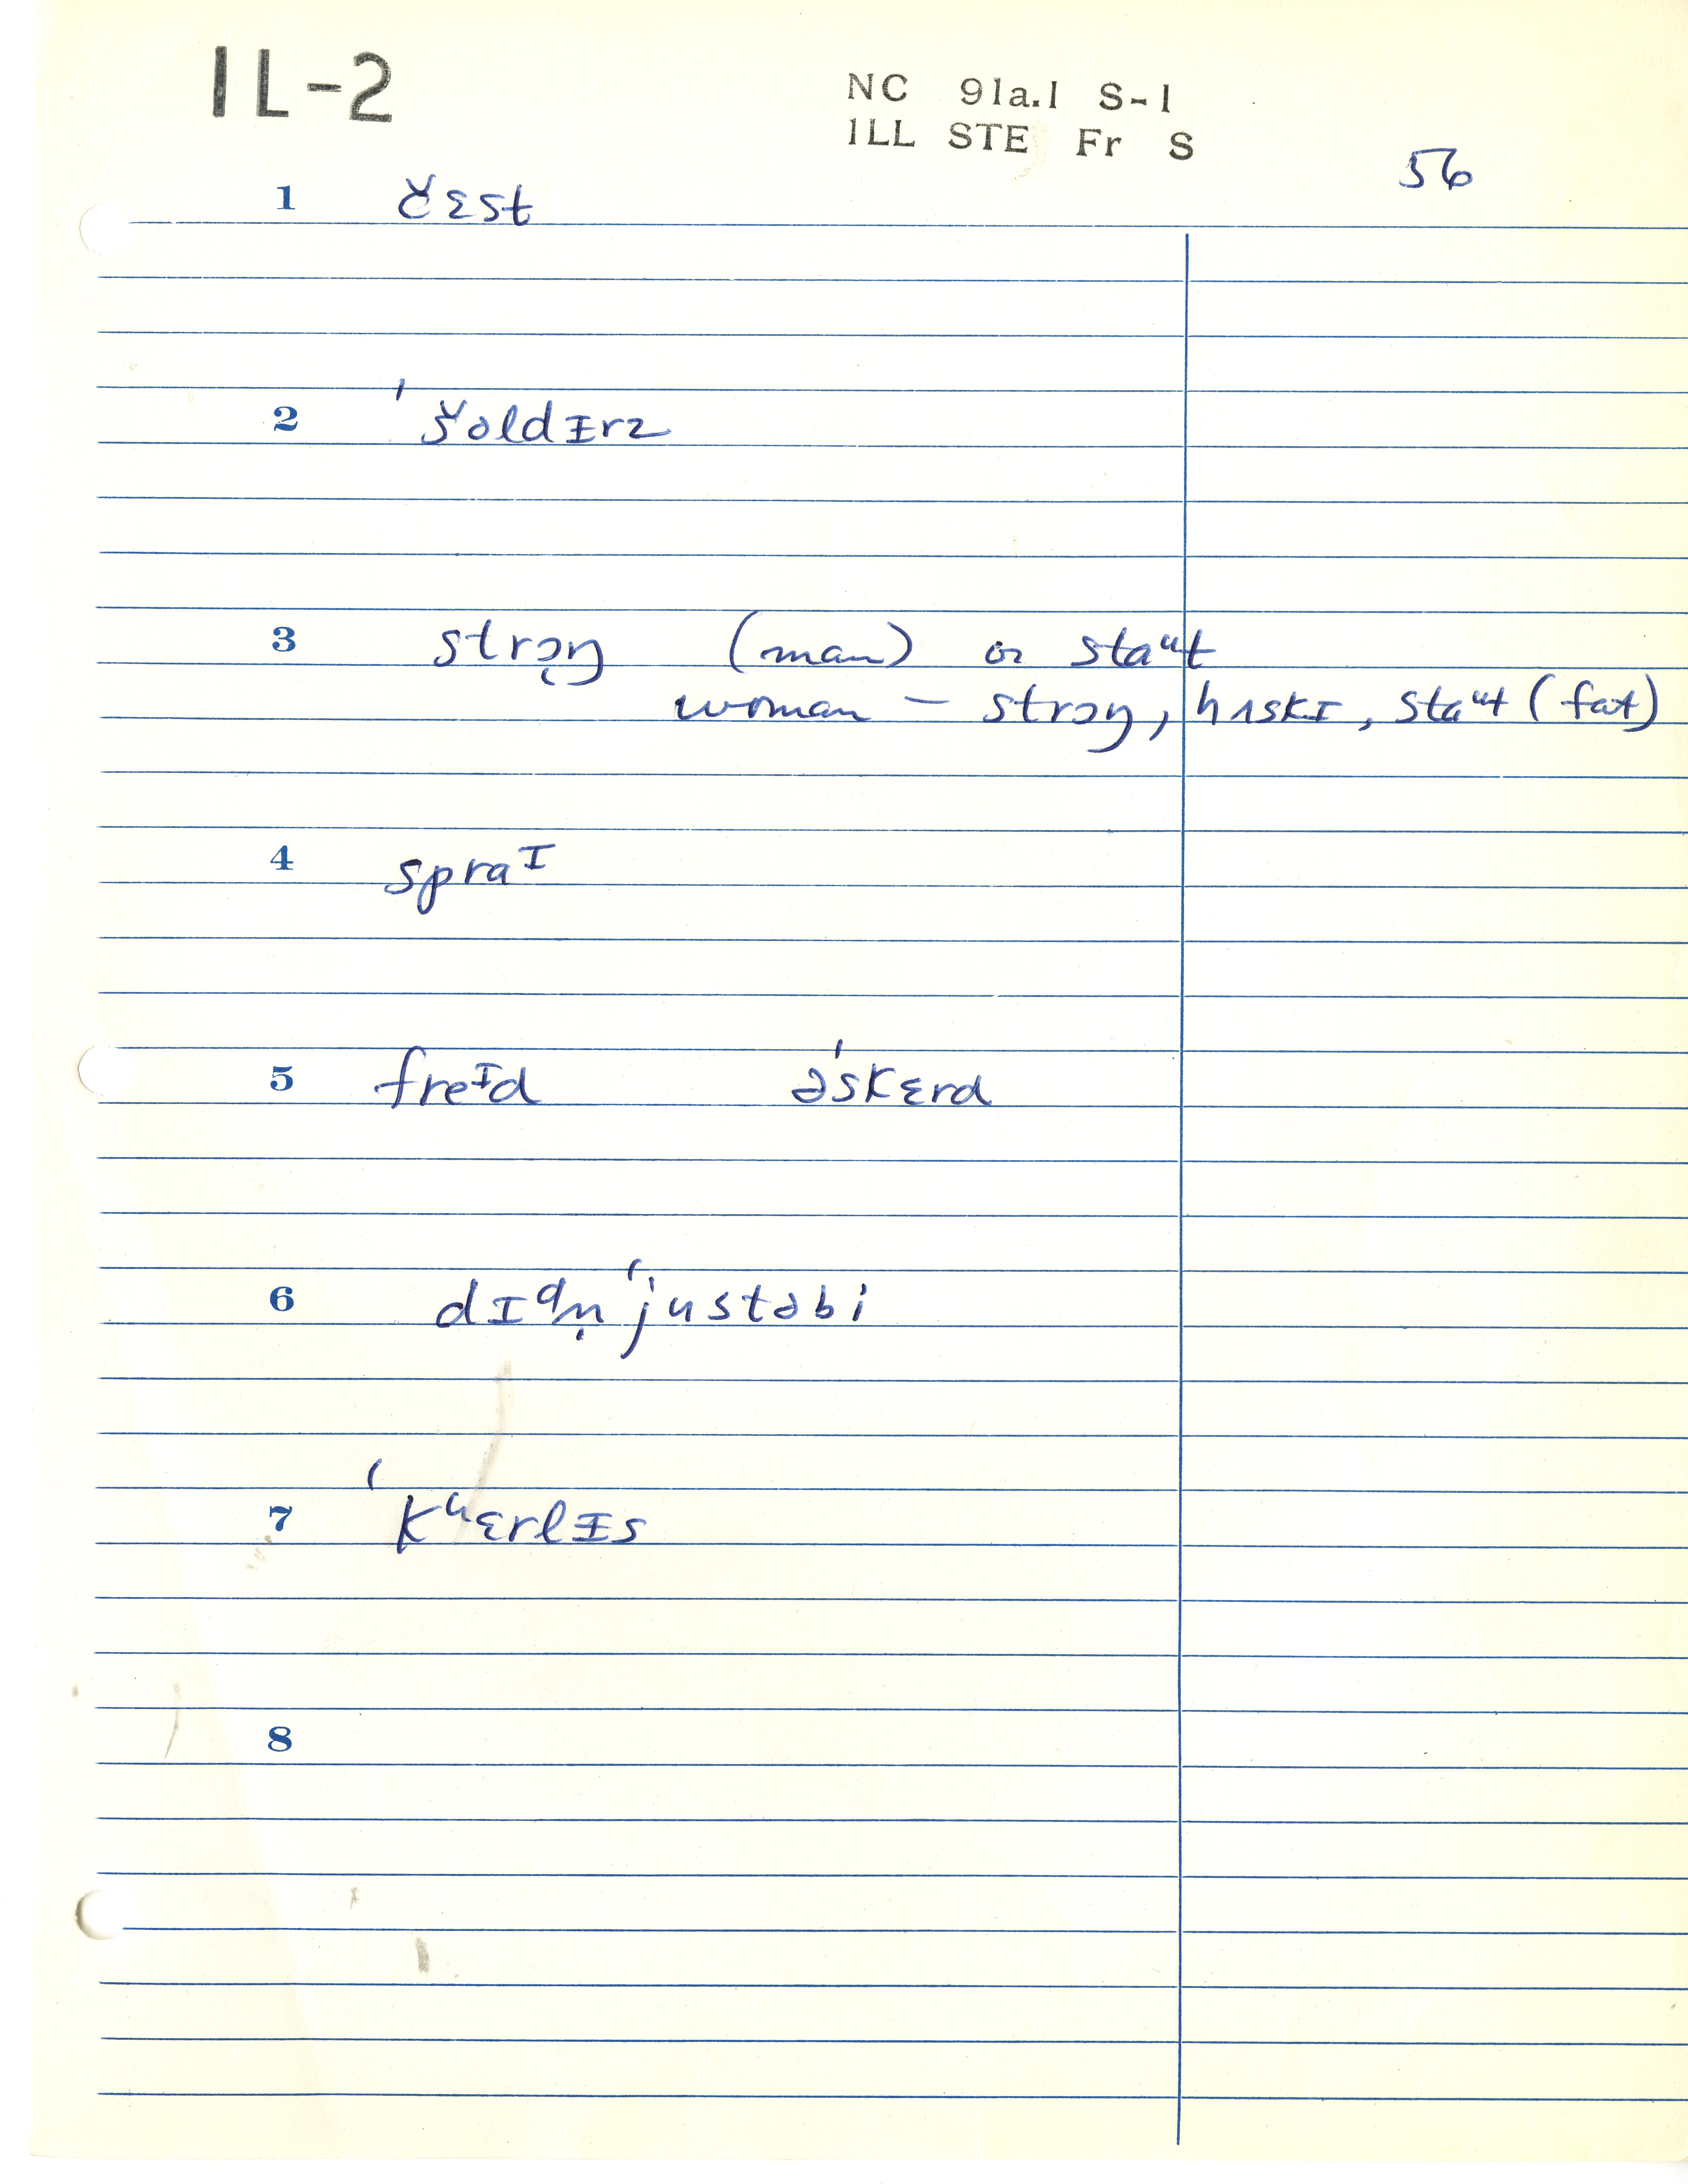 IL-2
NC 91a.1 S-1
ILL STE Fr S
56
1 č̌ɛst
2 ˈšoldɪrz
3 strɔ̨ŋ (man) or staᵘt
woman – strɔŋ, hʌskɪ, staᵘt (fat)
4 spraᶦ
5 freᶦd əˈskɛrd
6 dɪᵈn̩ˈjustəbi
7 ˈkʰɛrlɪs
8